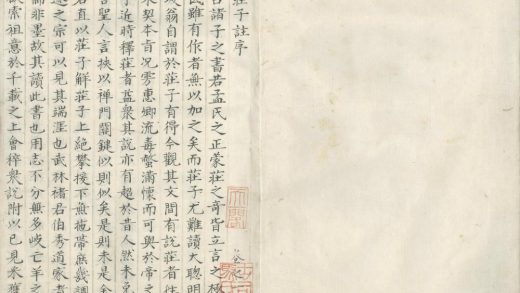 莊子註序
古諸子之書若孟氏之正蒙莊之奇皆立言之極
民雖有作者無以加之矣而莊子尤難讀大聰明
城翁自謂於莊子有得今觀其文間有說莊者往
未契本肯況雱惠卿流毒螫滿懷而可與於帝之
子近時釋莊者益衆其說亦有超於昔人然未免
言聖人言挾以禅門關鍵似則似矣是則未是余
君直以莊子解莊子上絶攀援下無拖帶庶幾調
述之宗可以見其端涯也武林褚君伯秀道家者
儒非墨故其讀此書也用志不分無多歧亡羊之
欲索祖意於千載之上會稡衆說附以已見采獲